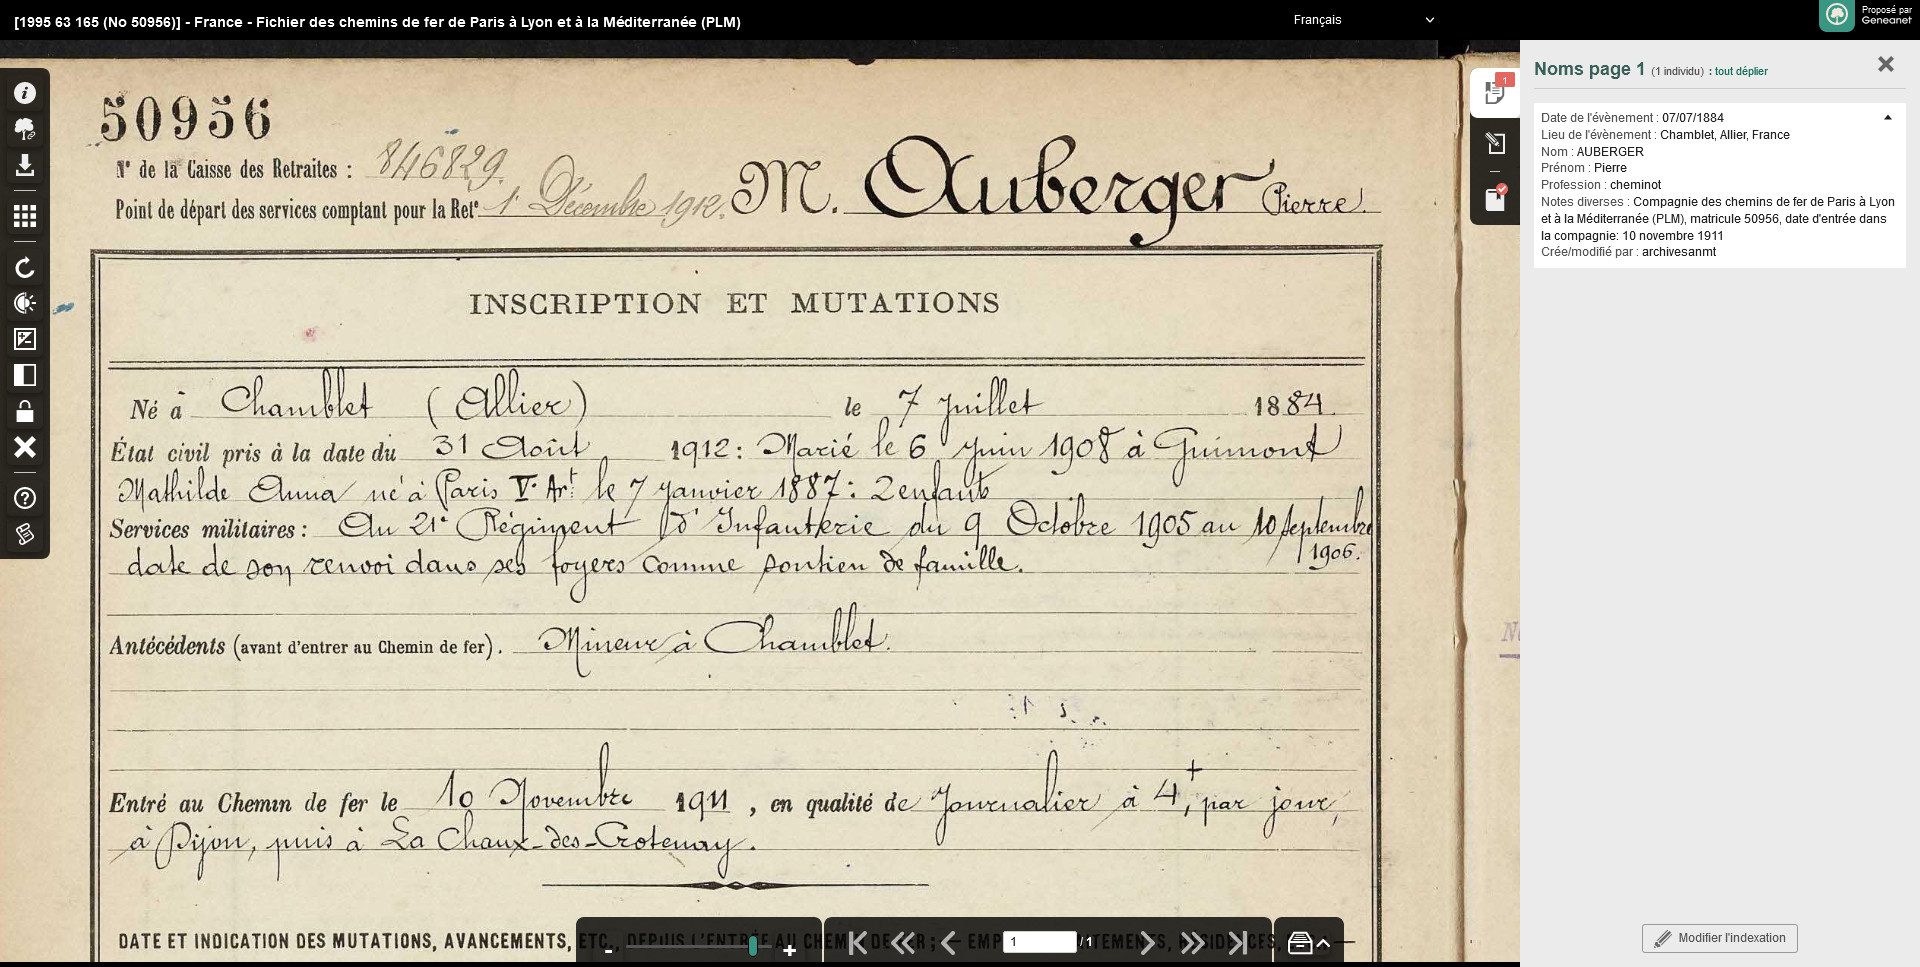 [1995 63 165 (No 50956)] - France - Fichier des chemins de fer de Paris à Lyon et à la Méditerranée (PLM)
Français
Proposé par
Geneanet
50956
N° de la Caisse des Retraites : 846829
Point de départ des services comptant pour la Rete 1r Décembre 1912.
M. Auberger Pierre.
INSCRIPTION ET MUTATIONS
Né à Chamblet (Allier) le 7 Juillet 1884.
État civil pris à la date du 31 Août 1912 : Marié le 6 Juin 1908 à Guimont
Mathilde Anna né à Paris Ve Art le 7 Janvier 1887 : 2 enfants
Services militaires : Au 21e Régiment d'Infanterie du 9 Octobre 1905 au 10 Septembre
1906.
date de son renvoi dans ses foyers comme soutien de famille.
Antécédents (avant d'entrer au Chemin de fer). Mineur à Chamblet.
Entré au Chemin de fer le 10 Novembre 1911, en qualité de Journalier à 4+, par jour,
à Dijon, puis à La Chaux-des-Crotenay.
DATE ET INDICATION DES MUTATIONS, AVANCEMENTS, ETC., DEPUIS L'ENTRÉE AU CHEMIN DE FER ;
- + 1 / 1
1
Noms page 1 (1 individu) : tout déplier
Date de l'évènement : 07/07/1884
Lieu de l'évènement : Chamblet, Allier, France
Nom : AUBERGER
Prénom : Pierre
Profession : cheminot
Notes diverses : Compagnie des chemins de fer de Paris à Lyon
et à la Méditerranée (PLM), matricule 50956, date d'entrée dans
la compagnie: 10 novembre 1911
Crée/modifié par : archivesanmt
Modifier l'indexation